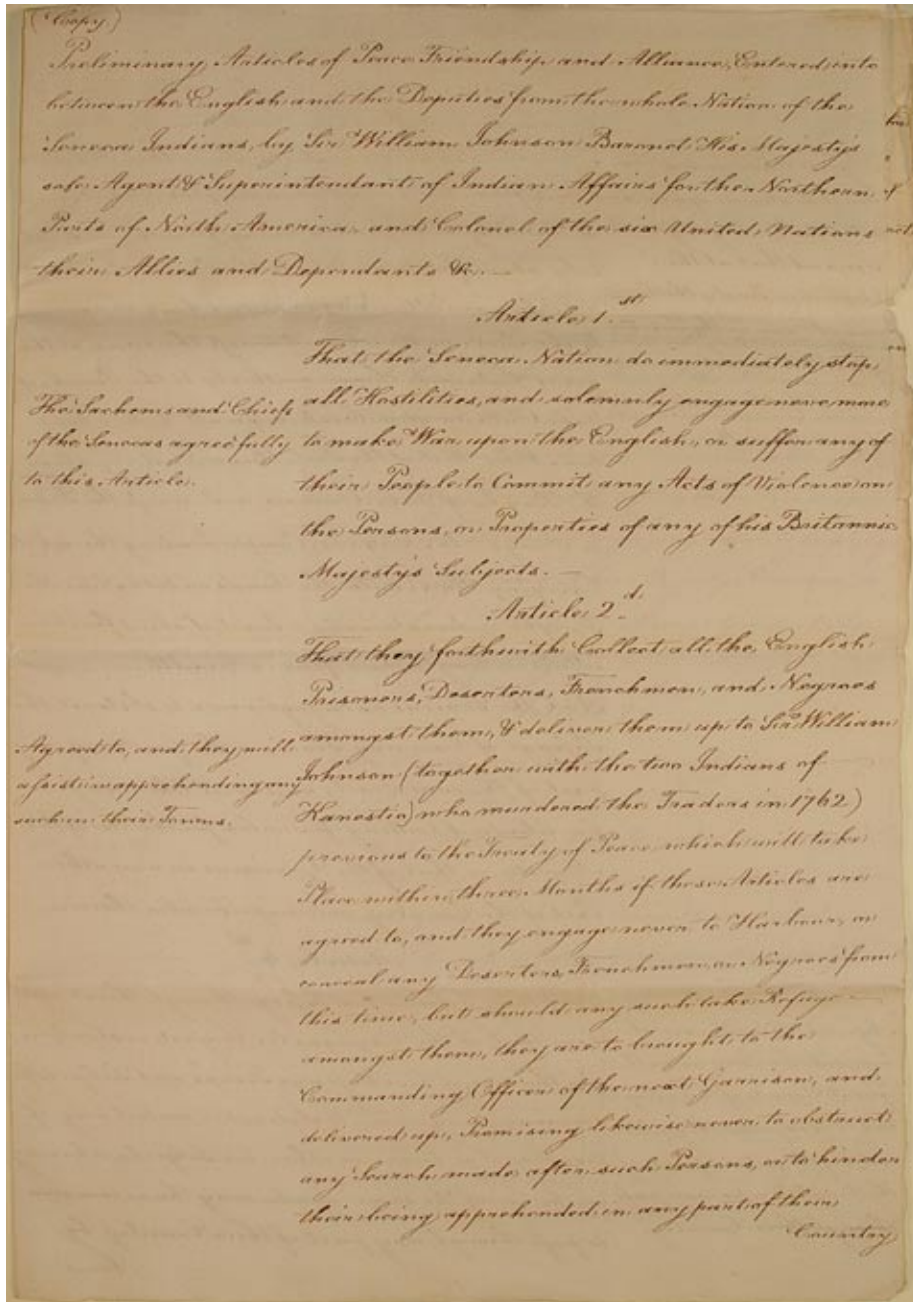 (Copy.)
Preliminary Articles of Peace Friendship and Alliance, Entered into
between the English and the Deputies from the whole Nation of the
Seneca Indians, by Sir William Johnson Baronet His Majestys
sole Agent & Superintendant of Indian Affairs for the Northern
Parts of North America, and Colonel of the six United Nations
their Allies and Dependants &c.
Article 1.st
That the Seneca Nation do immediately stop
all Hostilities, and solemnly engage never more
to make War upon the English, or suffer any of
their People to Commit any Acts of Violence on
the Persons, or Properties of any of his Britannic
Majestys Subjects.
The Sachems and Chiefs
of the Senecas agree fully
to this Article.
Article 2.d
That they forthwith Collect all the English
Prisoners, Deserters, Frenchmen, and Negroes
amongst them, & deliver them up to Sir William
Johnson (together with the two Indians of
Kanestio) who murdered the Traders in 1762)
previous to the Treaty of Peace which will take
Place within three Months if these Articles are
agreed to, and they engage never to Harbour, or
conceal any Deserters, Frenchmen, or Negroes from
this time, but should any such take Refuge
amongst them, they are to brought to the
Commanding Officer of the next Garrison, and
delivered up, Promising likewise never to obstruct
any Search made after such Persons, or to hinder
their being apprehended in any part of their
Country
Agreed to, and they will
assist in apprehending any
such in their Towns.